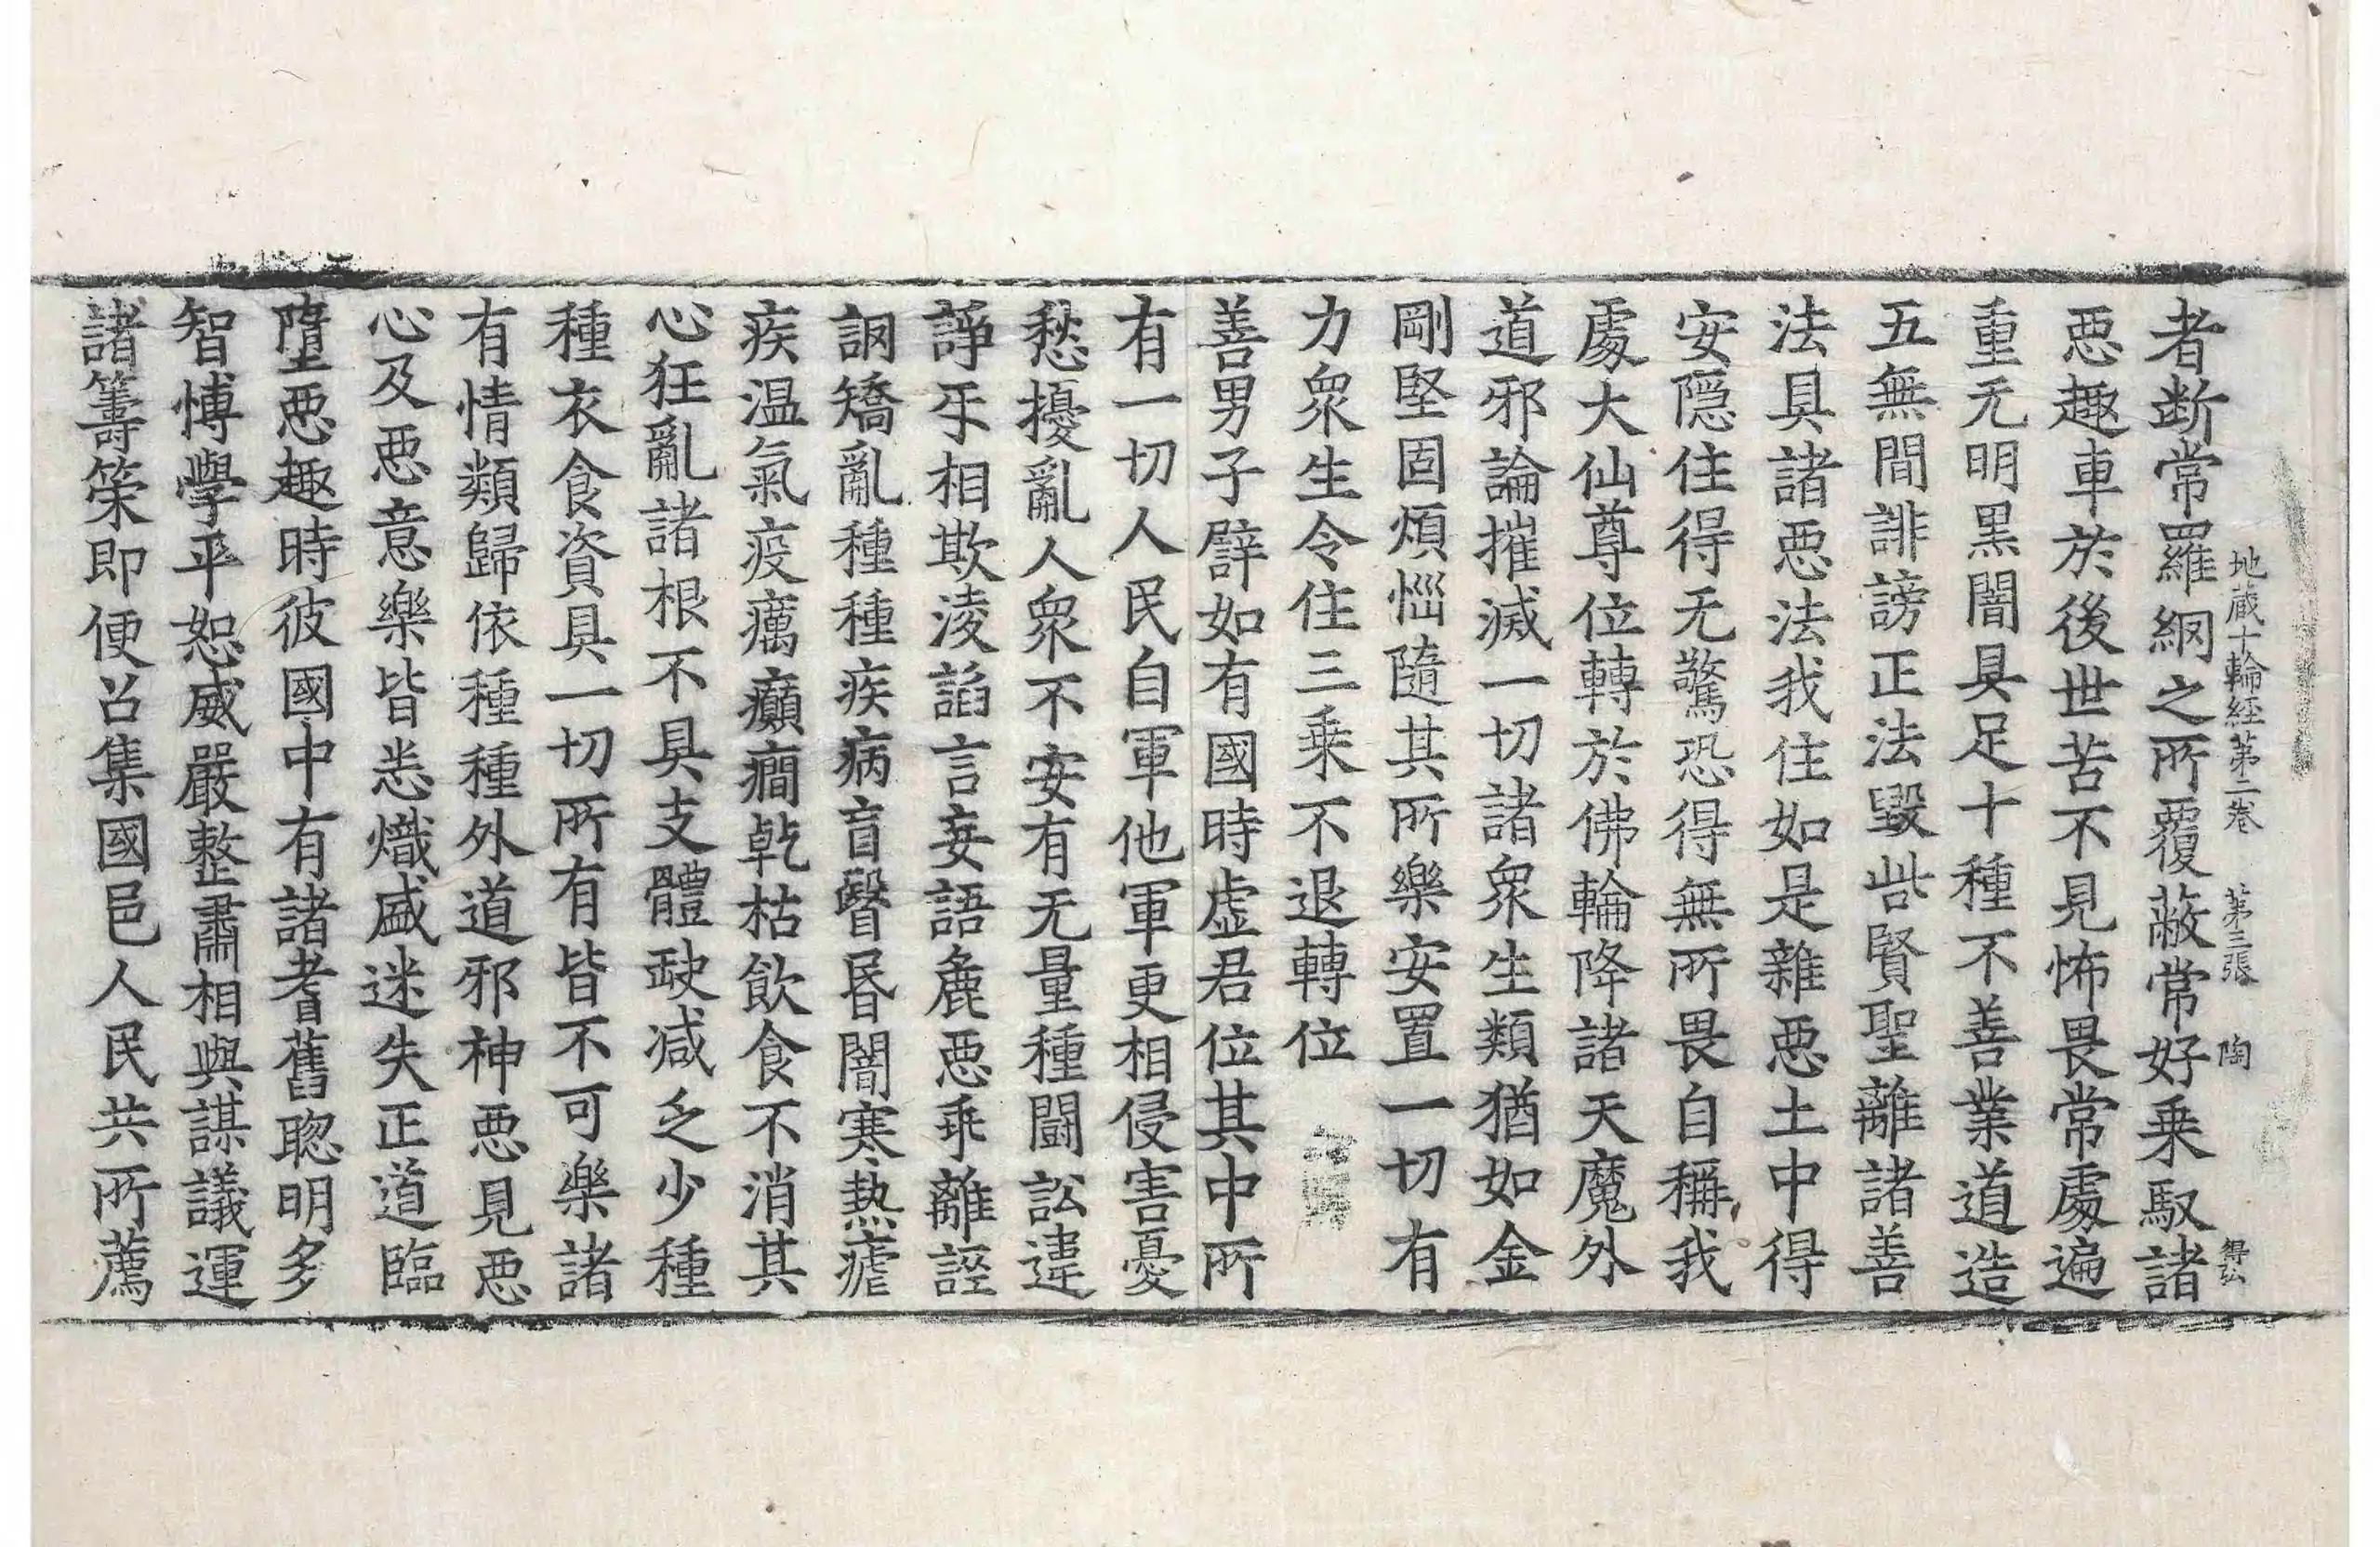 者断常羅網之所覆蔽常好乗馭諸
地蔵十輪経苐二卷 苐三張 陶 得弘
惡趣車於後世苦不見怖畏常處遍
重无明黒闇具足十種不善業道造
五無間誹謗正法毀呰賢聖離諸善
法具諸惡法我住如是雜惡土中得
安隱住得无驚恐得無所畏自稱我
處大仙尊位轉於佛輪降諸天魔外
道邪論摧滅一切諸眾生類猶如金
剛堅固煩惱隨其所樂安置一切有
力眾生令住三乗不退轉位
善男子譬如有國時虚君位其中所
有一切人民自軍他軍更相侵害憂
愁擾亂人眾不安有无量種鬪訟違
諍乐相欺淩諂言妄語麁惡乖離誙
詗矯亂種種疾病盲瞖昏闇寒热瘧
疾温氣疫癘癲癇乾枯飲食不消其
心狂亂諸根不具支體缺減乏少種
種衣食資具一切所有皆不可樂諸
有情類歸依種種外道邪神惡見惡
心及惡意樂皆悉熾盛迷失正道臨
墮惡趣時彼國中有諸耆舊聦明多
智博學平恕威嚴整肅相與謀議運
諸籌策即便召集國邑人民共所薦